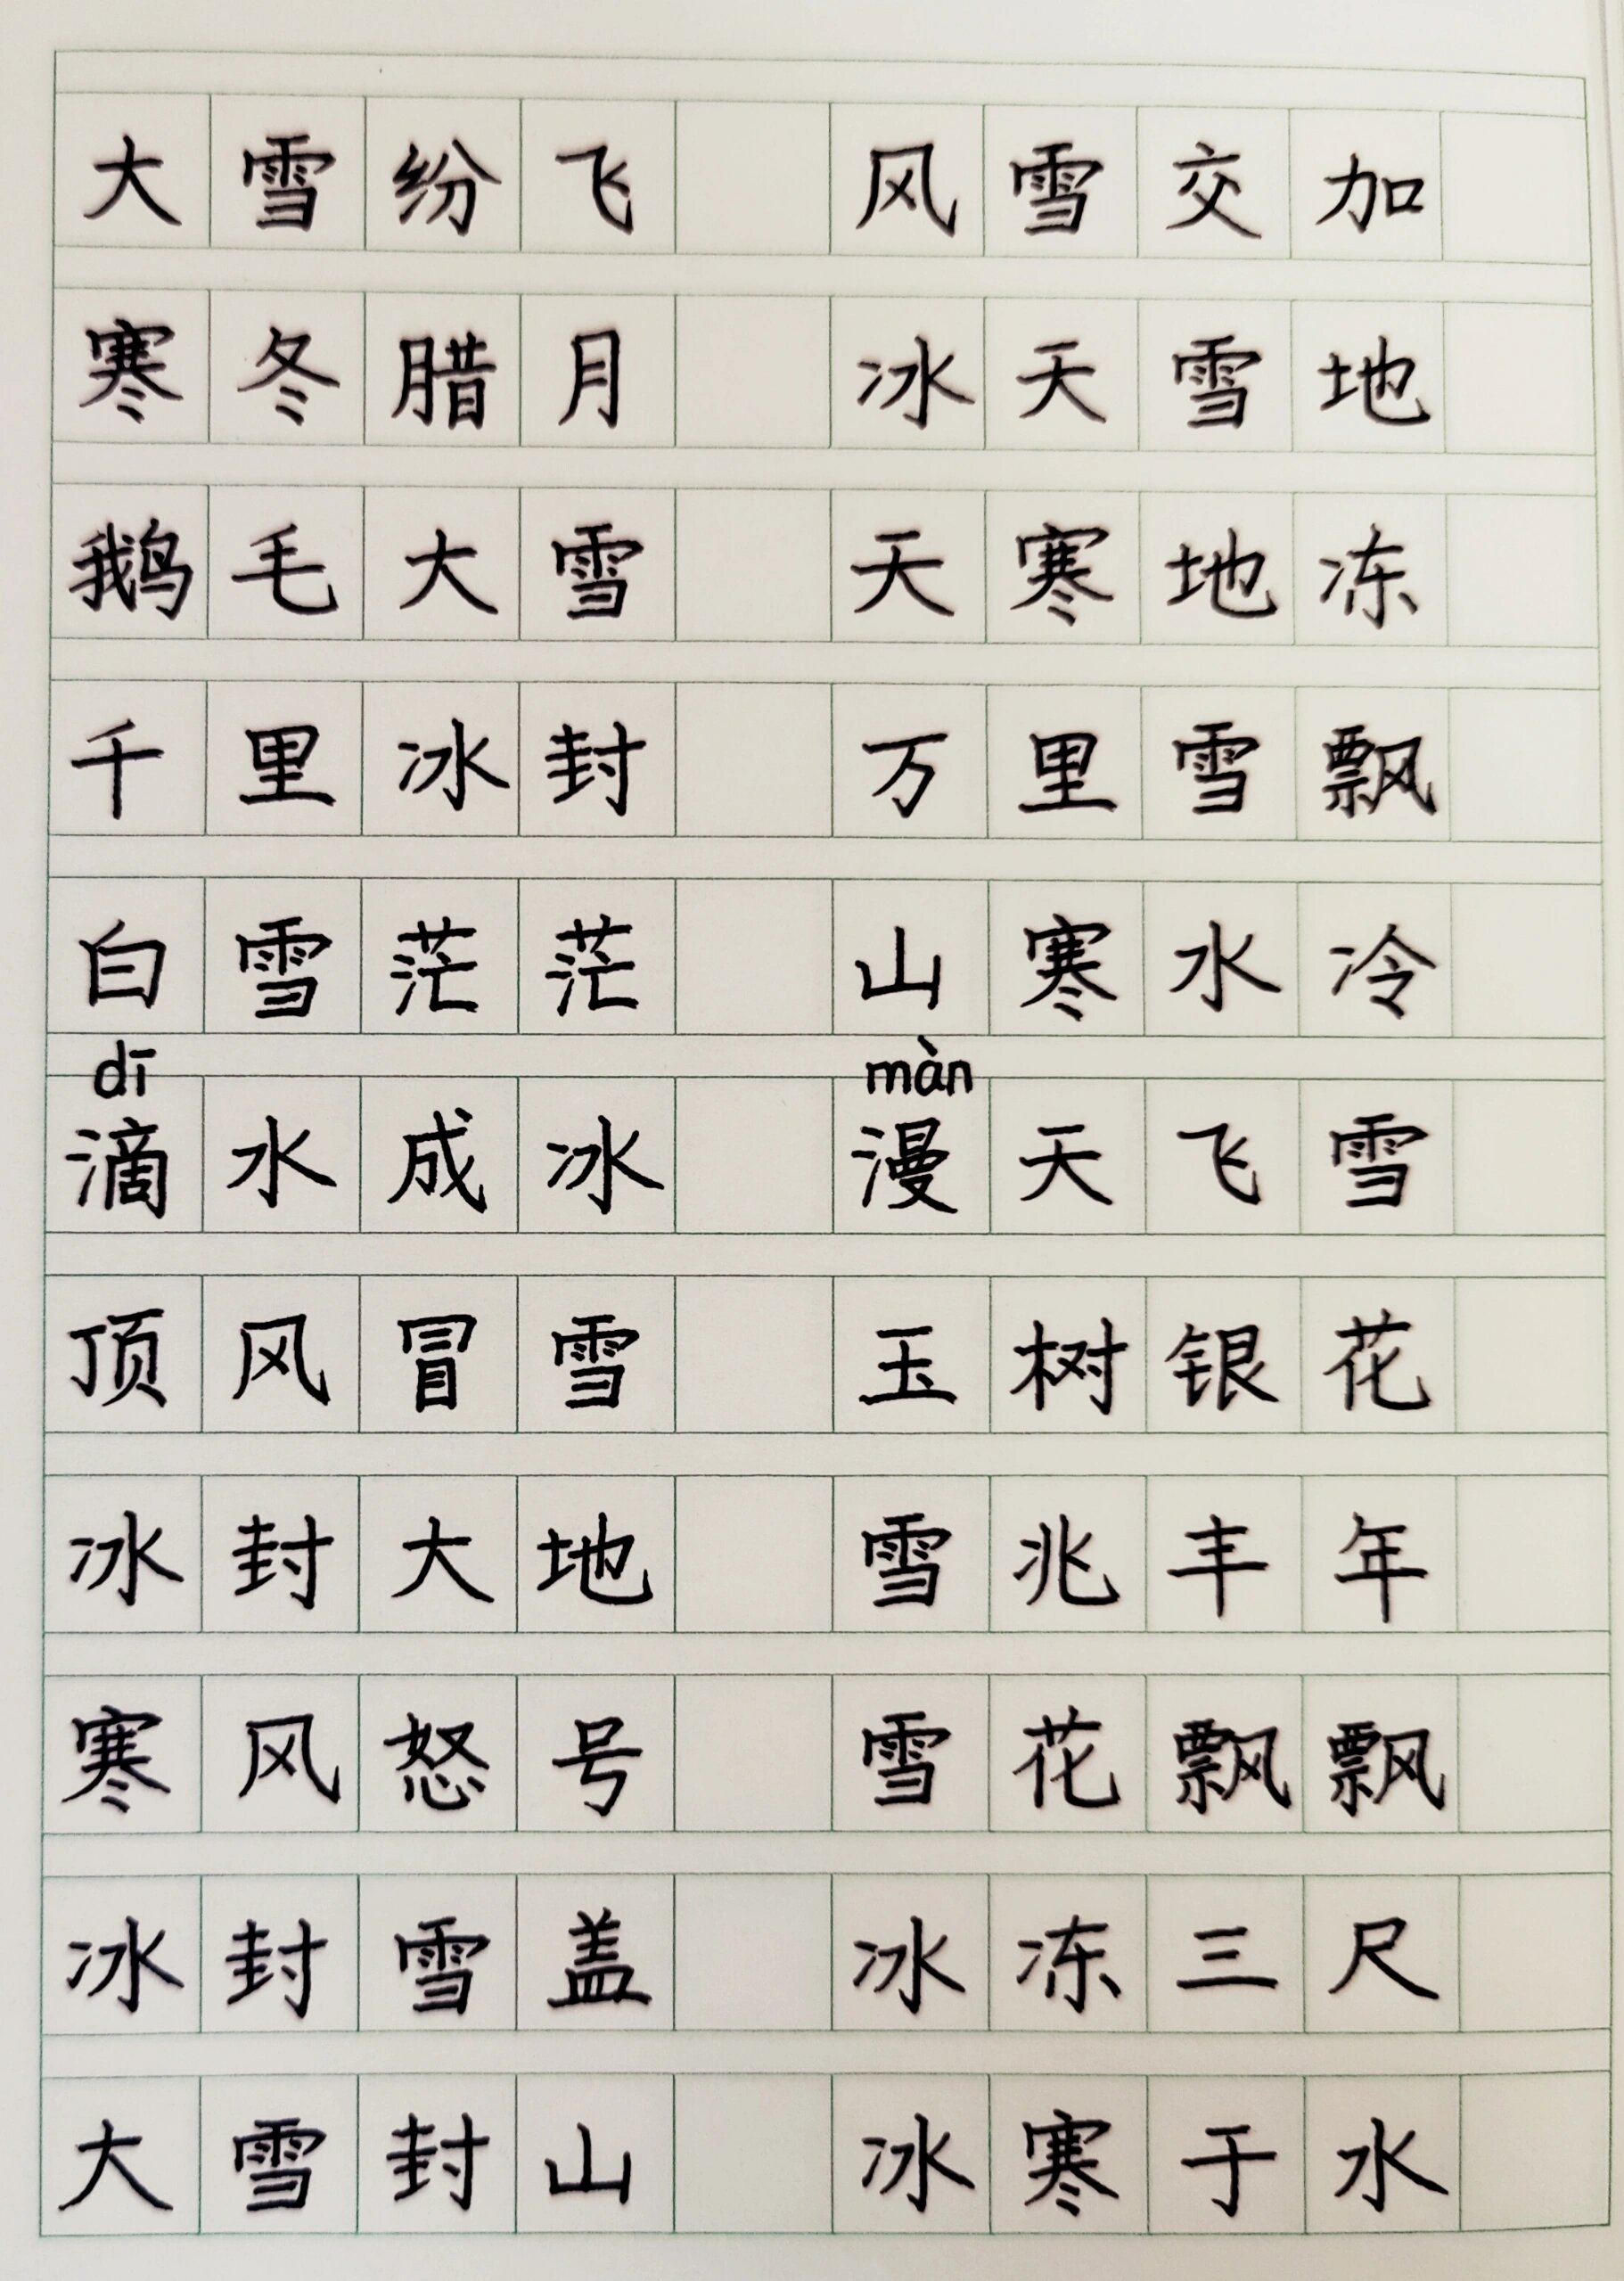 大雪纷飞 风雪交加
寒冬腊月 冰天雪地
鹅毛大雪 天寒地冻
千里冰封 万里雪飘
白雪茫茫 山寒水冷
dī màn
滴水成冰 漫天飞雪
顶风冒雪 玉树银花
冰封大地 雪兆丰年
寒风怒号 雪花飘飘
冰封雪盖 冰冻三尺
大雪封山 冰寒于水